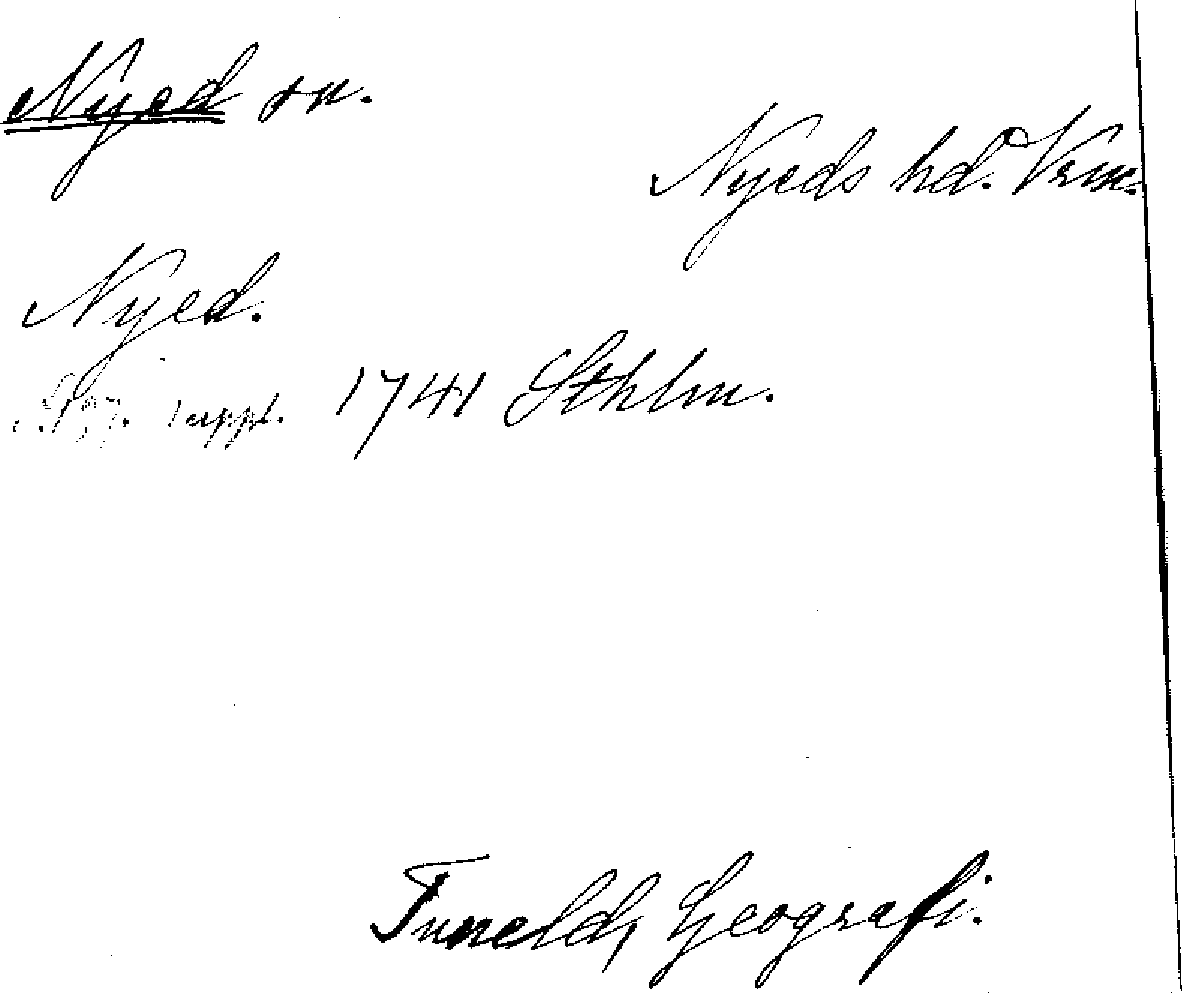 Nyed sn.
Nyeds hd. Vrm.
Nyed.
1 uppl. 1741 Sthlm.
Tuneld, Geografi.